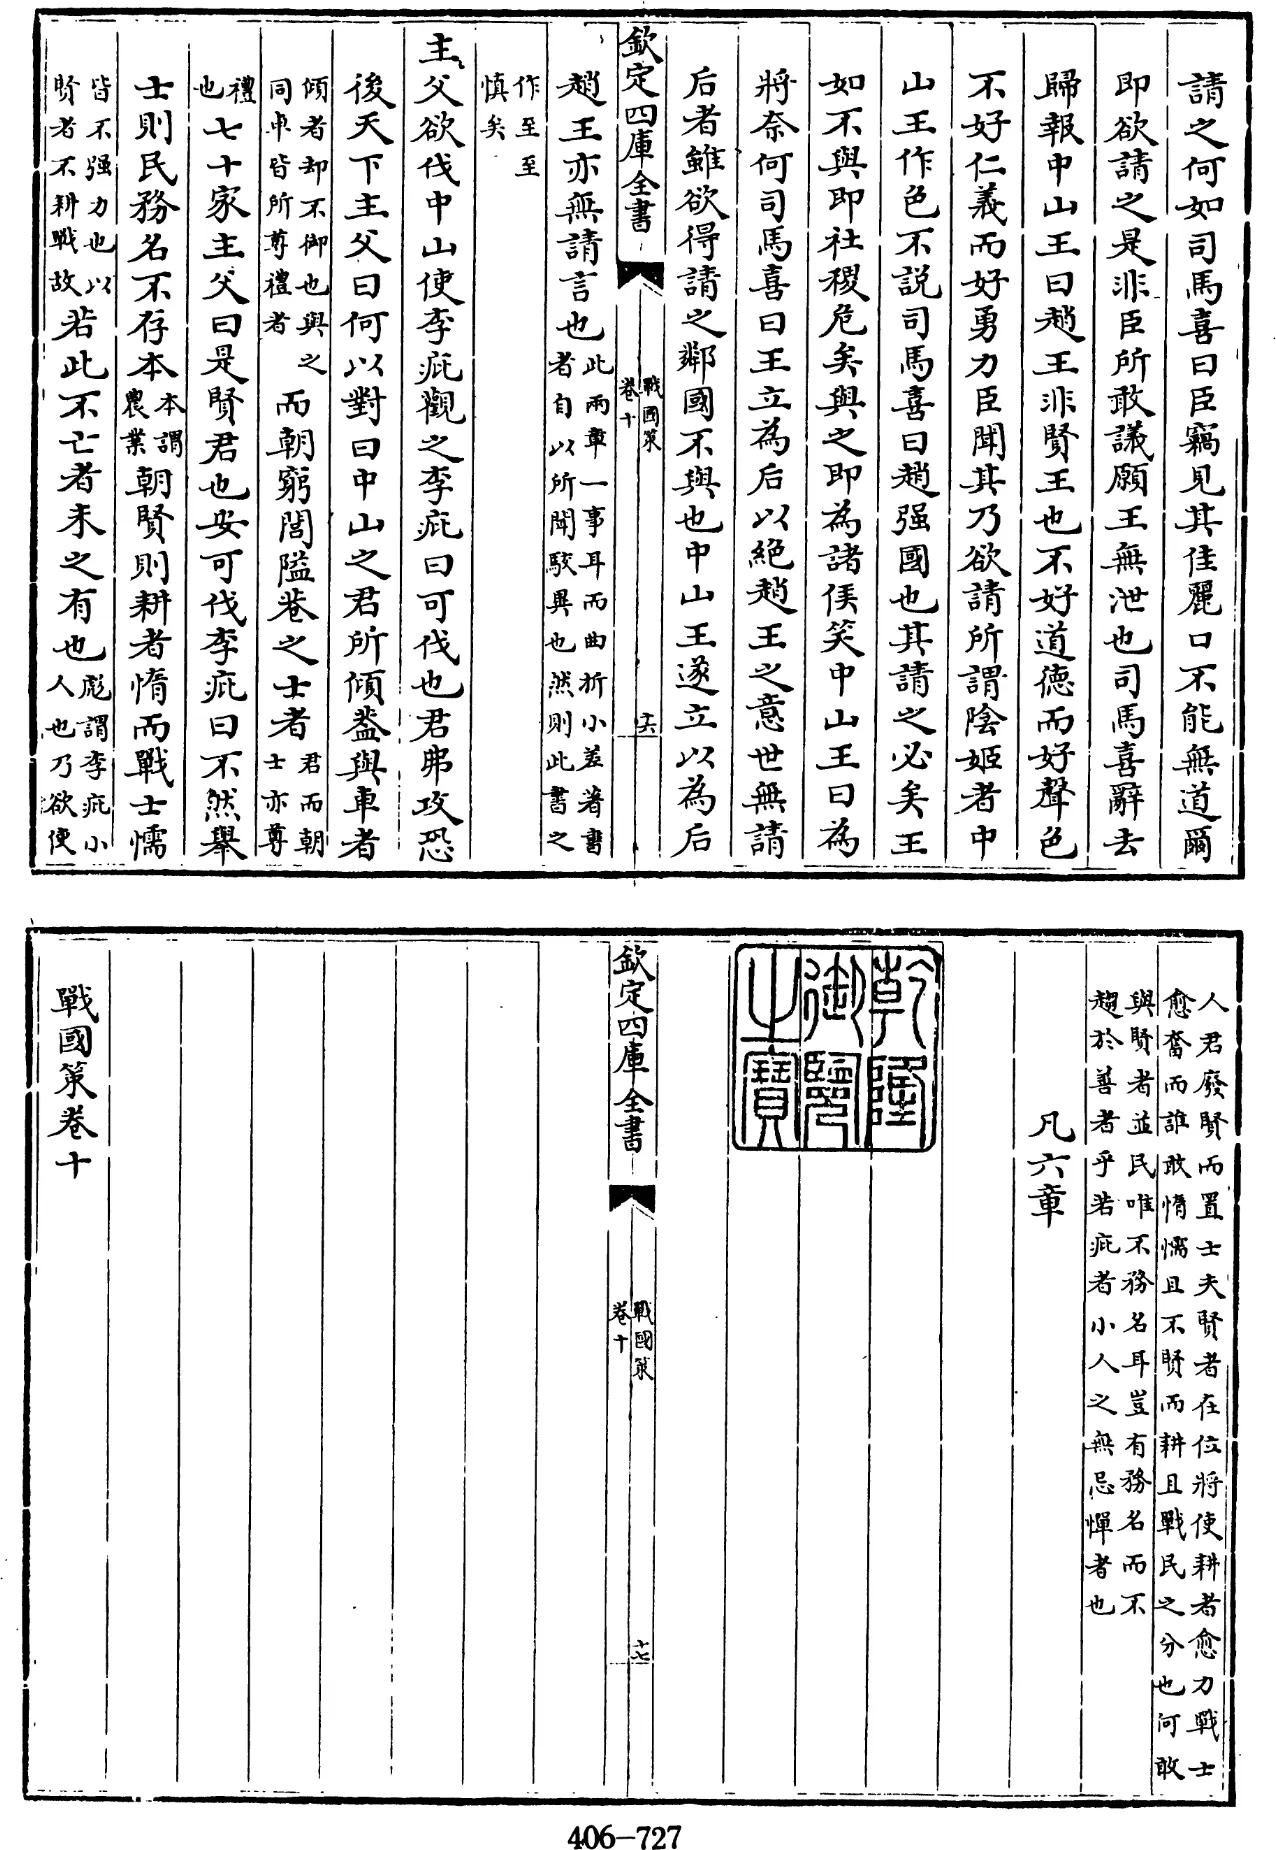 請之何如司馬喜曰臣竊見其佳麗口不能無道爾
即欲請之是非臣所敢議願王無泄也司馬喜辭去
歸報中山王曰趙王非賢王也不好道德而好聲色
不好仁義而好勇力臣聞其乃欲請所謂陰姬者中
山王作色不說司馬喜曰趙强國也其請之必矣王
如不與即社稷危矣與之即為諸侯笑中山王曰為
將奈何司馬喜曰王立為后以絕趙王之意世無請
后者雖欲得請之鄰國不與也中山王遂立以為后
欽定四庫全書
戰國策
卷十
十六
趙王亦無請言也此兩章一事耳而曲折小差著書者自以所聞駮異也然則此書之
作至至慎矣
主父欲伐中山使李疵觀之李疵曰可伐也君弗攻恐
後天下主父曰何以對曰中山之君所傾葢與車者
傾者却不御也與之同車皆所尊禮者而朝窮閭隘巷之士者君而朝士亦尊
禮也七十家主父曰是賢君也安可伐李疵曰不然舉
士則民務名不存本本謂農業朝賢則耕者惰而戰士懦
皆不强力也以賢者不耕戰故若此不亡者未之有也彪謂李疵小人也乃欲使
人君廢賢而置士夫賢者在位將使耕者愈力戰士
愈奮而誰敢惰懦且不賢而耕且戰民之分也何敢
與賢者並民唯不務名耳豈有務名而不
趨於善者乎若疵者小人之無忌憚者也
凡六章
乾隆御覽之寶
欽定四庫全書
戰國策
卷十
十七
戰國策卷十
406-727